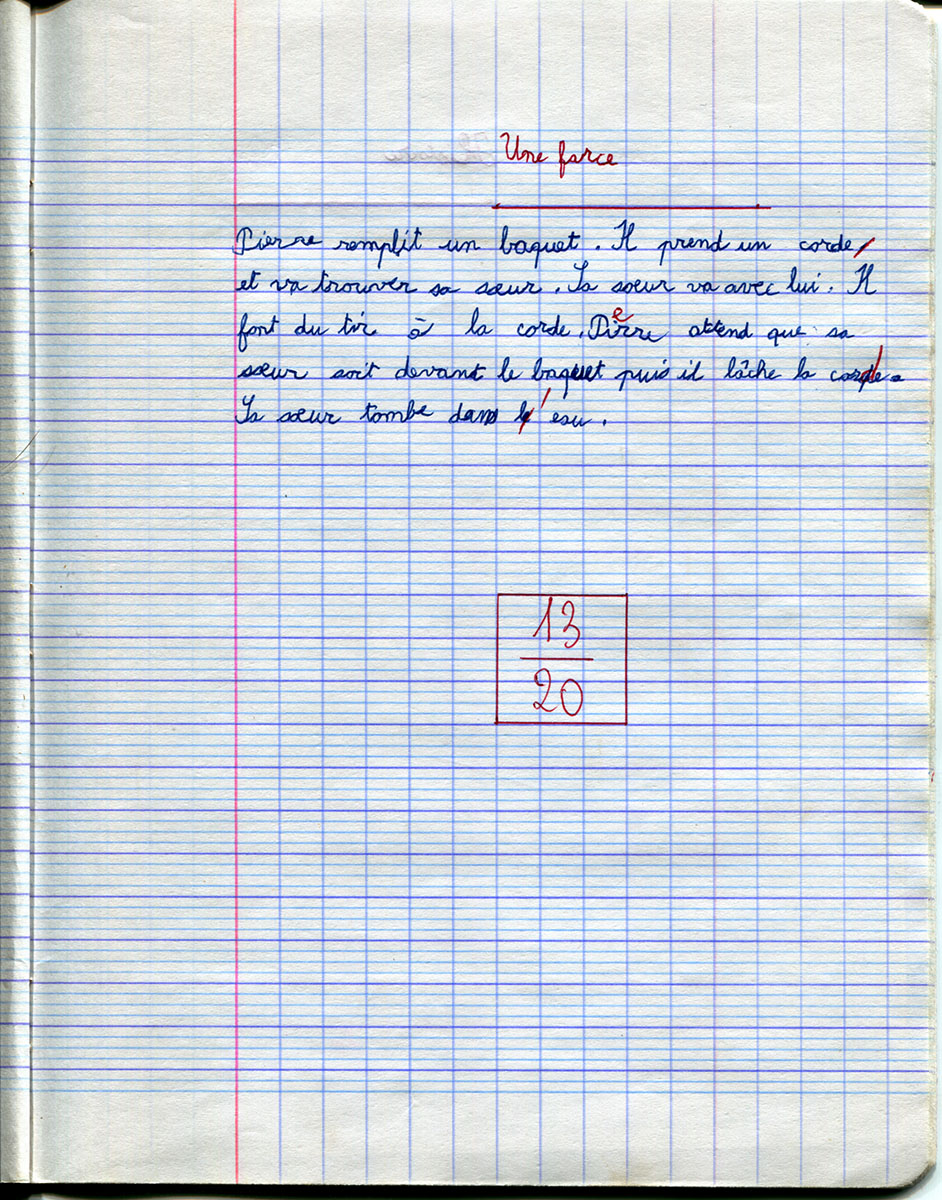 Une farce
Pierre remplit un baquet. Il prend un corde
et va trouver sa sœur. Sa sœur va avec lui. Il
font du tir à la corde. Pierre attend que sa
sœur soit devant le baquet puis il lâche la corde.
Sa sœur tombe dans l'eau.
13
20